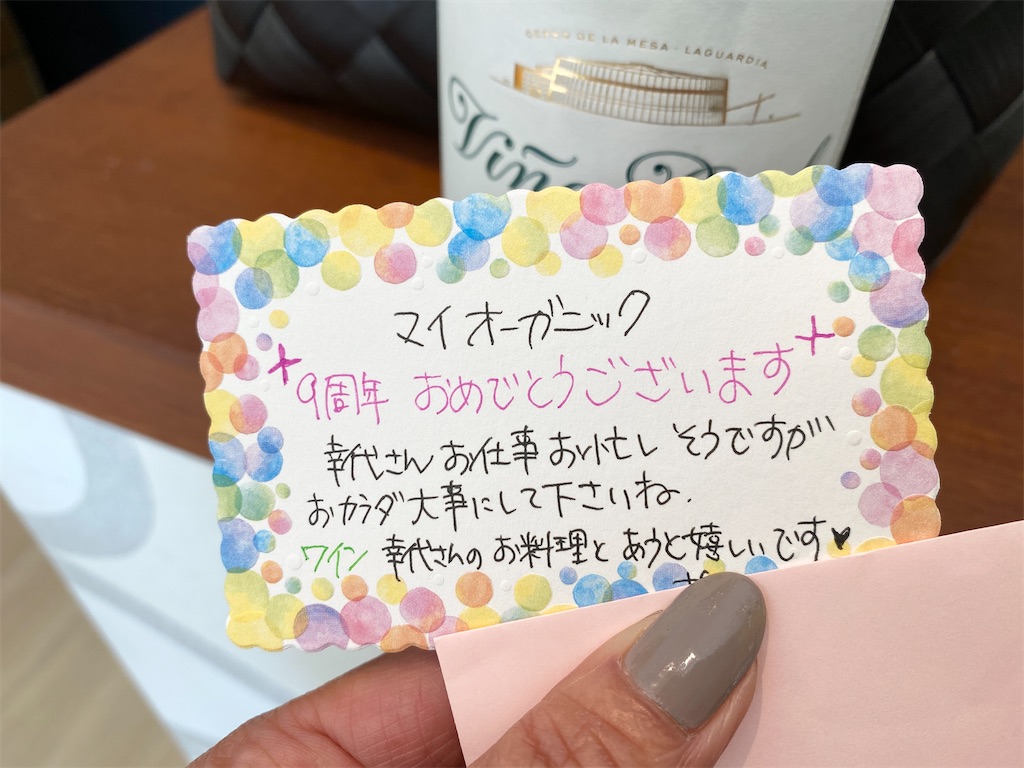 CEDRO DE LA MESA - LAGUARDIA
Viña
マイオーガニック
9周年 おめでとうございます
幸代さん お仕事 お忙し そうですが
おカラダ大事にして下さいね.
ワイン 幸代さんの お料理と あうと嬉しいです♥